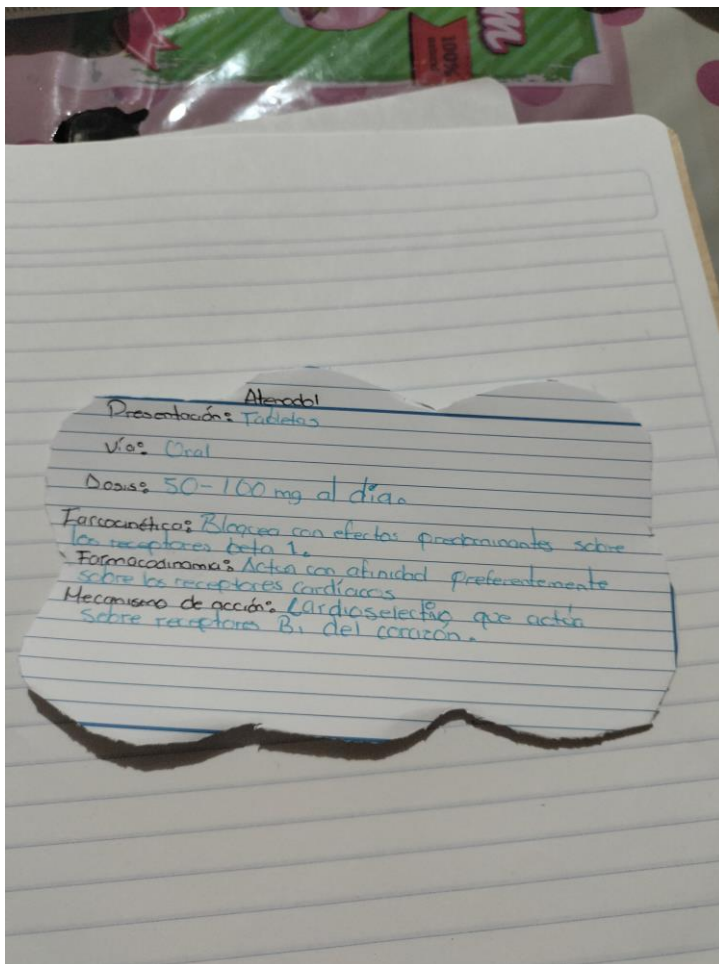 100%
m
Atenodol
Presentación: Tabletas
Vía: Oral
Dosis: 50-100 mg al día.
Farcocinética: Bloqueo con efectos predominantes sobre
los receptores beta 1.
Farmacodinamia: Actua con afinidad preferentemente
sobre los receptores cardíacos
Mecanismo de acción: Cardioselectivo que actúa
sobre receptores B1 del corazón.